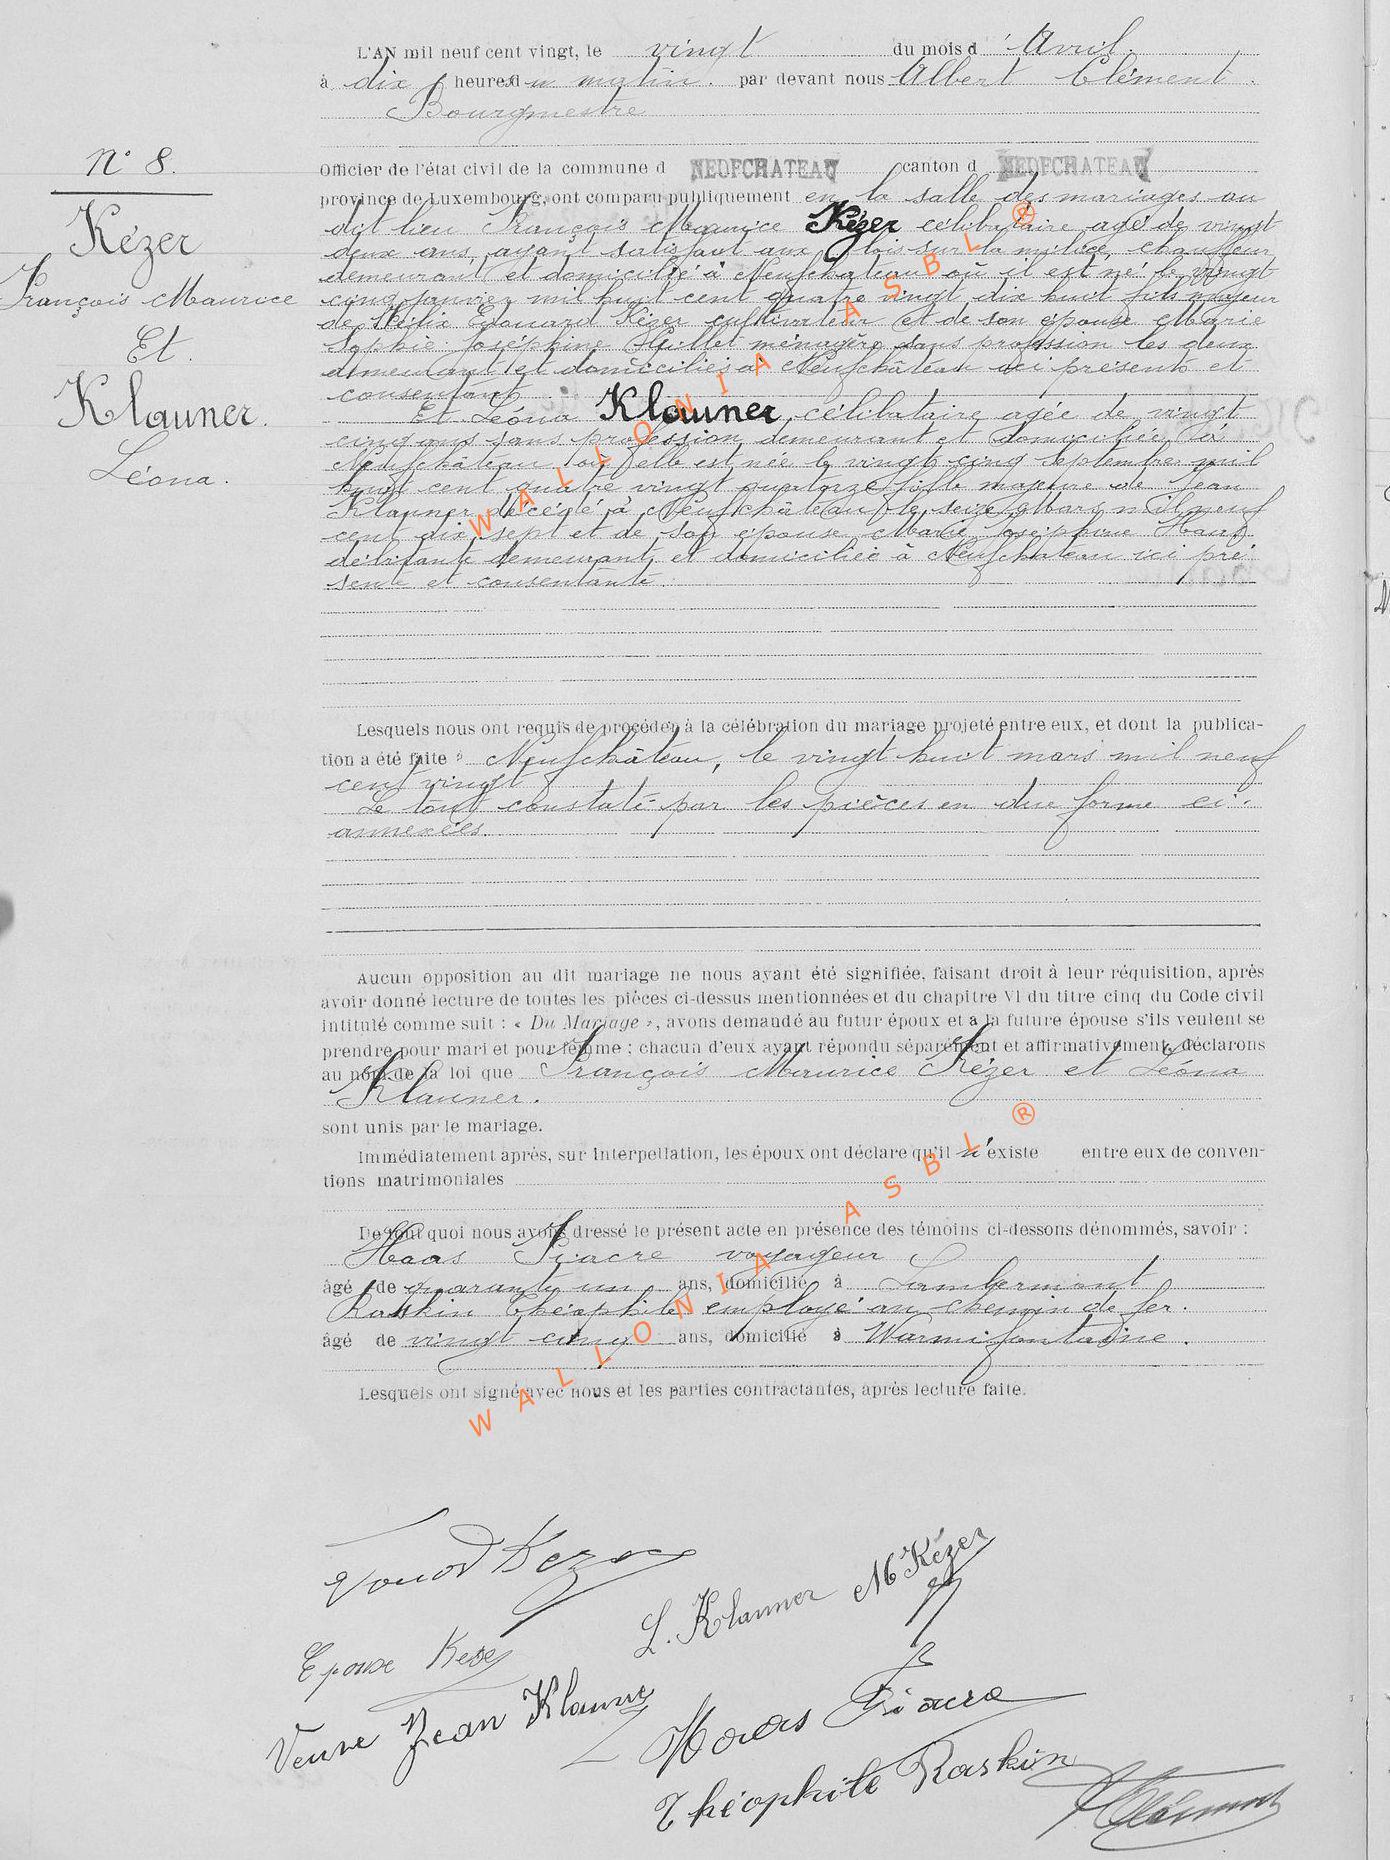 L'AN mil neuf cent vingt, le vingt du mois d'Avril.
à dix heures du matin. par devant nous Albert Clément.
Bourgmestre
Officier de l'état civil de la commune d NEUFCHATEAU canton d NEUFCHATEAU
province de Luxembourg, ont comparu publiquement en la salle des mariages au
dit lieu François Maurice Kézer célibataire agé de vingt
deux ans, ayant satisfait aux lois sur la milice, chauffeur
demeurant et domicilié à Neufchateau où il est né le vingt
cinq janvier mil huit cent quatre vingt dix huit fils majeur
de Félix Edouard Kézer cultivateur et de son épouse Marie
Sophie Joséphine ménagère sans profession les deux
demeurant et domiciliés à Neufchâteau ici présents et
consentant
Et Léona Klauner, célibataire agée de vingt
cinq ans sans profession demeurant et domiciliée à
Neufchâteau où elle est née le vingt cinq septembre mil
huit cent quatre vingt quatorze fille majeure de Jean
Klauner décédé à Neufchâteau le seize Mars mil neuf
cent dix sept et de son épouse Marie Joséphine Haas
débitante demeurant et domiciliée à Neufchateau ici pré
sente et consentante.
N° 8.
Kézer
François Maurice
Et.
Klauner.
Léona.
Lesquels nous ont requis de procéder à la célébration du mariage projeté entre eux, et dont la publica-
tion a été faite à Neufchâteau, le vingt huit mars mil neuf
cent vingt
Le tout constaté par les pièces en due forme ci-
annexées.
Aucun opposition au dit mariage ne nous ayant été signifiée, faisant droit à leur réquisition, après
avoir donné lecture de toutes les pièces ci-dessus mentionnées et du chapitre VI du titre cinq du Code civil
intitulé comme suit : « Du Mariage », avons demandé au futur époux et a la future épouse s'ils veulent se
prendre pour mari et pour femme ; chacun d'eux ayant répondu séparément et affirmativement, déclarons
au nom de la loi que François Maurice Kézer et Léona
Klauner.
sont unis par le mariage.
Immédiatement après, sur interpellation, les époux ont déclare qu'il n'existe entre eux de conven-
tions matrimoniales
De tout quoi nous avons dressé le présent acte en présence des témoins ci-dessons dénommés, savoir :
Haas Fiacre voyageur
âgé de quarante un ans, domicilié à Lambermont
Raskin Théophile employé au chemin de fer.
âgé de vingt cinq ans, domicilié à Warmifontaine.
Lesquels ont signé avec nous et les parties contractantes, après lecture faite.
Kezer
L. Klauner M Kézer
Epouse Kezer
Veuve Jean Klauner
Haas Fiacre
Théophile Raskin
Clément
WALLONIA ASBL ®
WALLONIA ASBL ®